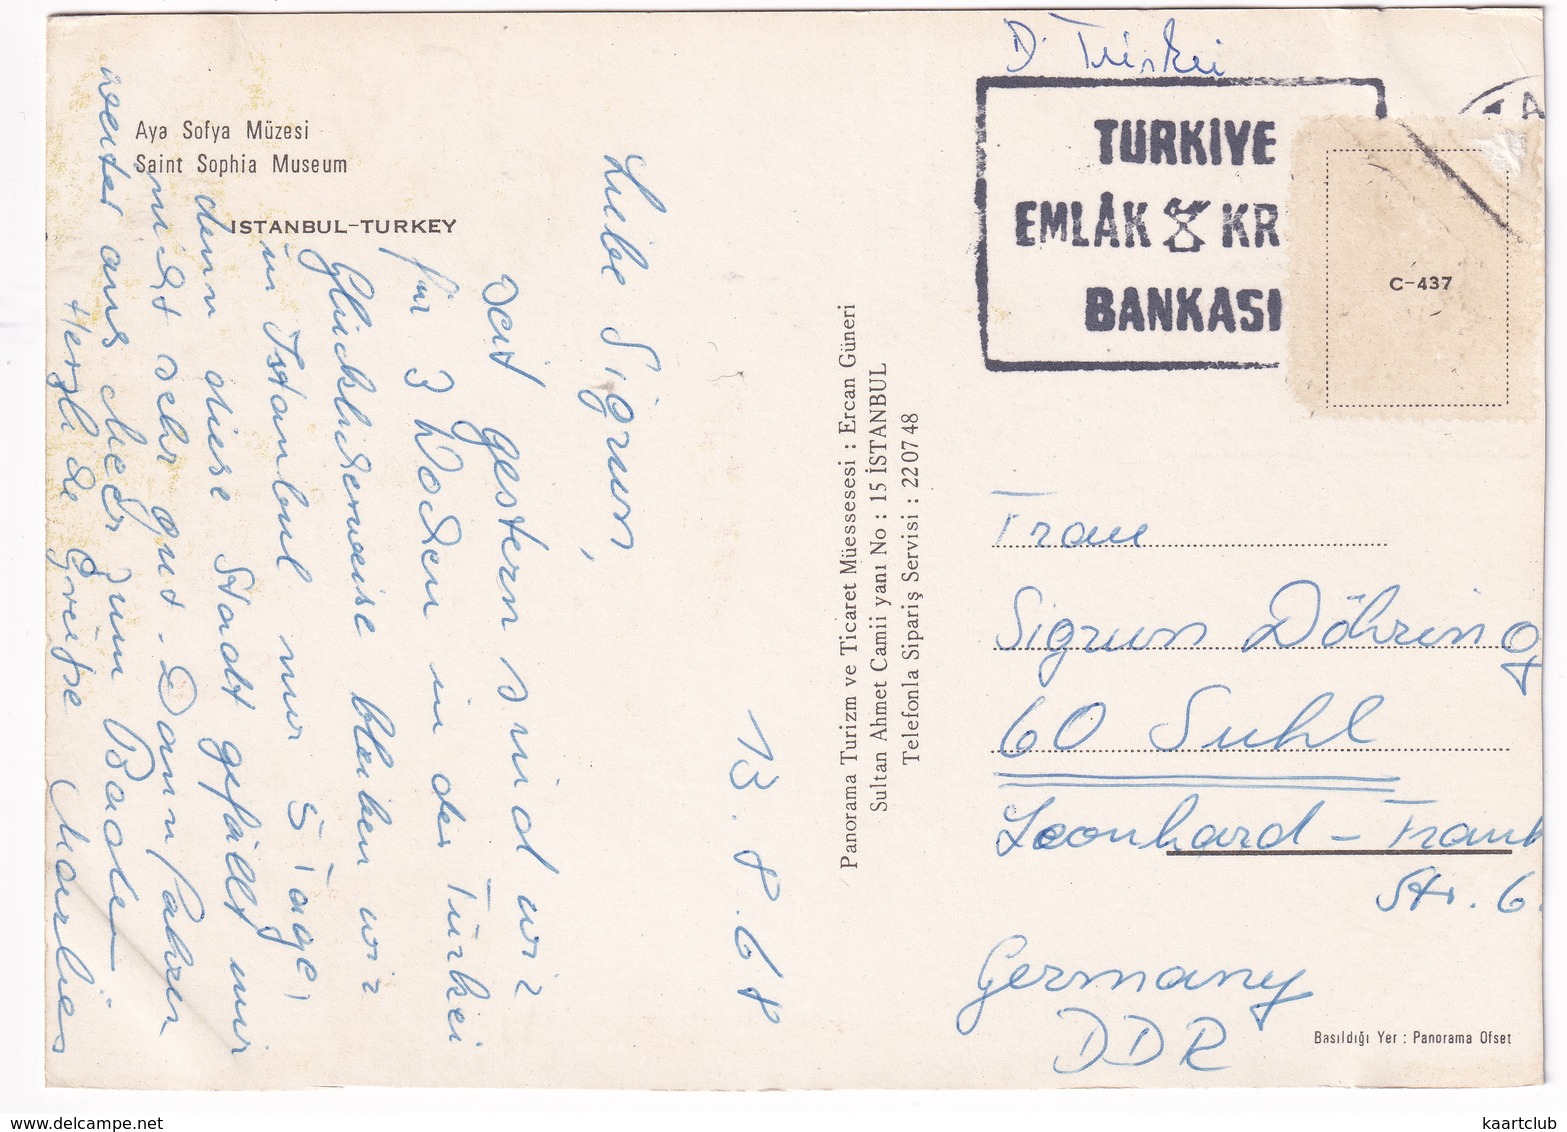 Aya Sofya Müzesi
Saint Sophia Museum
ISTANBUL-TURKEY
13.8.68
Liebe Sigrun,
seit gestern sind wir
für 3 Wochen in der Türkei
Glücklicherweise bleiben wir
in Istanbul nur 5 Tage,
denn diese Stadt gefällt mir
nicht sehr gut. Dann fahren
weiter ans Meer zum Baden
Herzliche Grüße Marlies
Panorama Turizm ve Ticaret Müessesesi : Ercan Güneri
Sultan Ahmet Camii yanı No : 15 İSTANBUL
Telefonla Sipariş Servisi : 220748
TÜRKİYE
EMLÂK KR
BANKASI
C-437
Frau
Sigrun Döhring
60 Suhl
Leonhard - Frank
Str. 6
Germany
DDR
Basıldığı Yer : Panorama Ofset
kaartclub